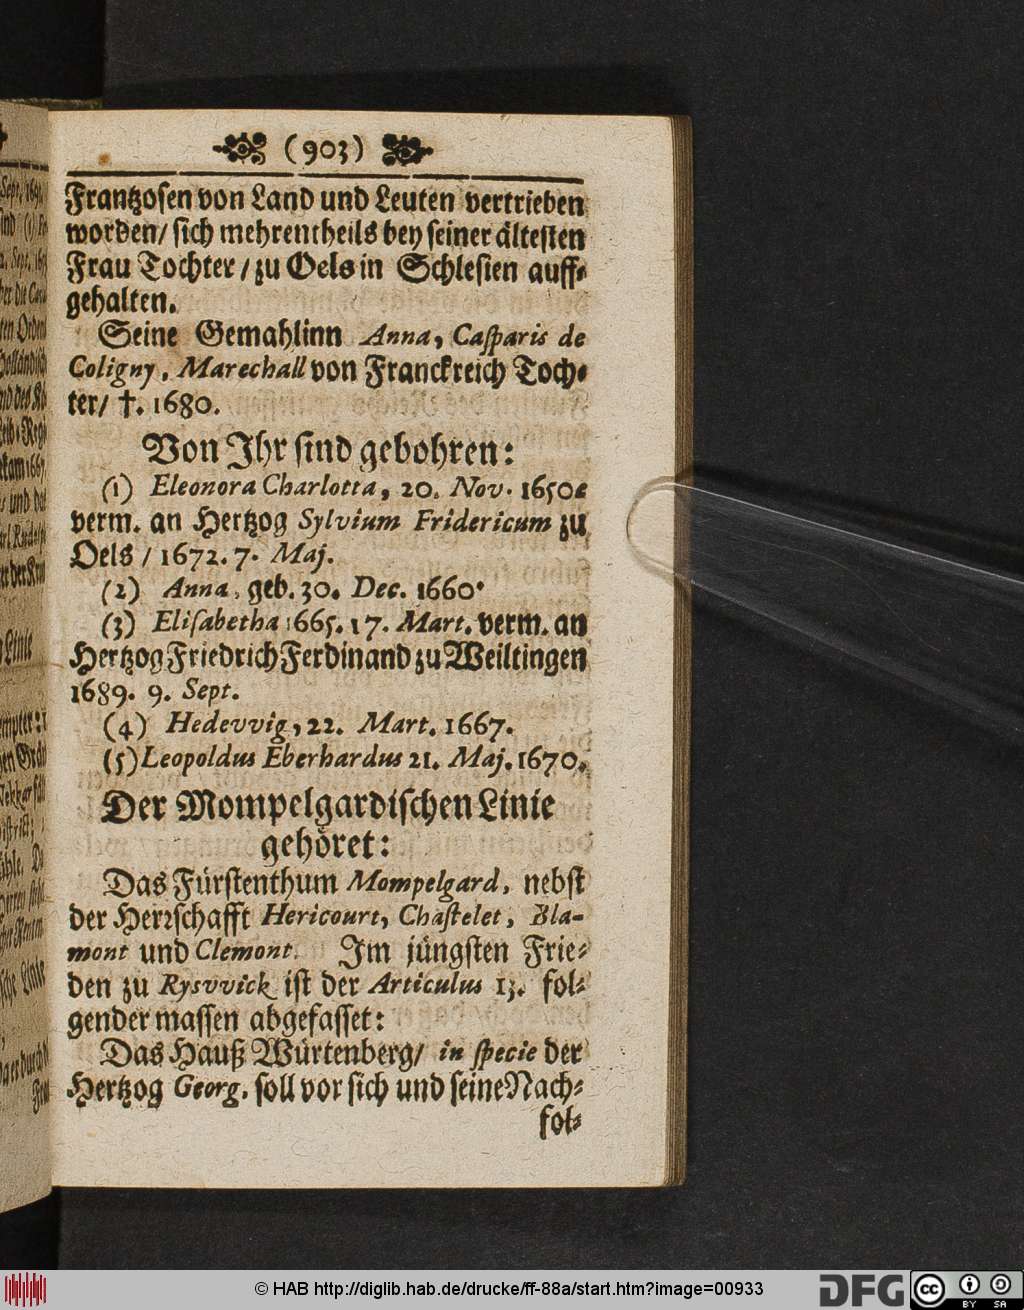 (903)
Frantzosen von Land und Leuten vertrieben
worden/ sich mehrentheils bey seiner åltesten
Frau Tochter/ zu Oels in Schlesien auff-
gehalten.
Seine Gemahlinn Anna, Casparis de
Coligny, Marechall von Franckreich Toch-
ter/ †. 1680.
Von Ihr sind gebohren:
(1) Eleonora Charlotta, 20. Nov. 1650.
verm. an Hertzog Sylvium Fridericum zu
Oels / 1672. 7. Maj.
(2) Anna, geb. 30. Dec. 1660.
(3) Elisabetha 1665. 17. Mart. verm. an
Hertzog Friedrich Ferdinand zu Weiltingen
1689. 9. Sept.
(4) Hedevvig, 22. Mart. 1667.
(5) Leopoldus Eberhardus 21. Maj. 1670.
Der Mompelgardischen Linie
gehöret:
Das Fürstenthum Mompelgard, nebst
der Herrschafft Hericourt, Chastelet, Bla-
mont und Clemont. Im jüngsten Frie-
den zu Rysvvick ist der Articulus 13. fol-
gender massen abgefasset:
Das Hauß Würtenberg/ in specie der
Hertzog Georg, soll vor sich und seine Nach-
fol-
© HAB http://diglib.hab.de/drucke/ff-88a/start.htm?image=00933
DFG
cc
BY SA